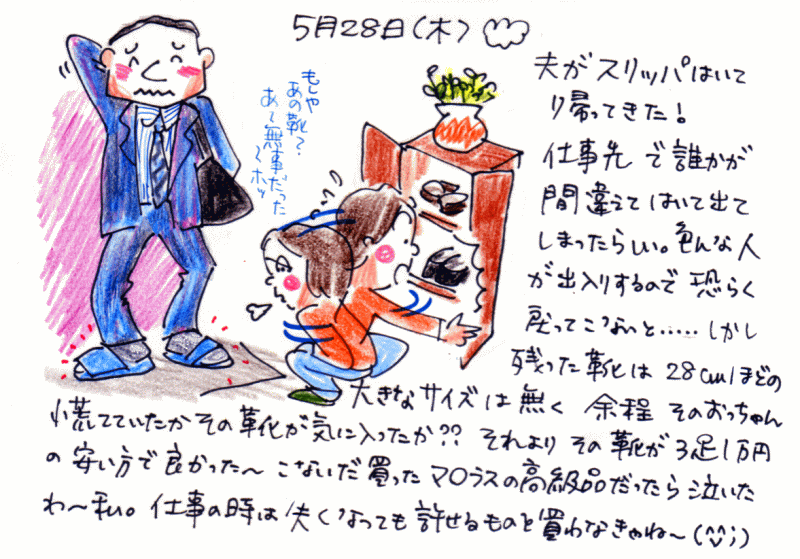 5月28日(木)
夫がスリッパはいて
り帰ってきた!
仕事先で誰かが
間違えてはいて出て
しまったらしい。色んな人
が出入りするので恐らく
戻ってこないと.....しかし
残った靴は28cmほどの
大きなサイズは無く 余程 そのおっちゃん
慌てていたかその靴が気に入ったか?? それより その靴が3足1万円
の安い方で良かった〜 こないだ買ったマ○ラスの高級品だったら泣いた
わ〜私。仕事の時は失くなっても許せるものを買わなきゃね〜(^^;)
もしや
あの靴?
あ〜無事だった
〜ホッ